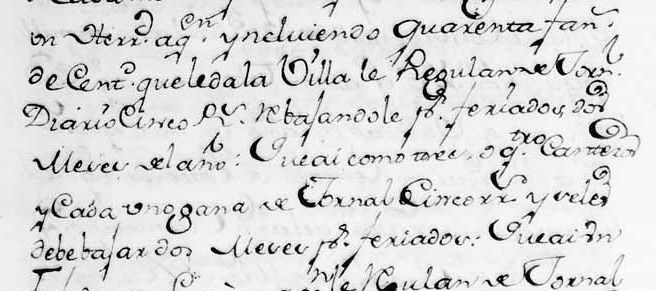 un Herr.do a q.n yncluiendo quarenta fan.s
de Cent.o que le da la Villa le Regulan de Jorn.l
Diario Cinco r.s V.n rebajandole p.r feriados dos
Meses del año: Que ai como tres o q.tro Canteros
y Cada uno gana de Jornal Cinco rr.s y se les
debe bajar dos Meses p.r feriados: Que ai un
le Regulan de Jornal